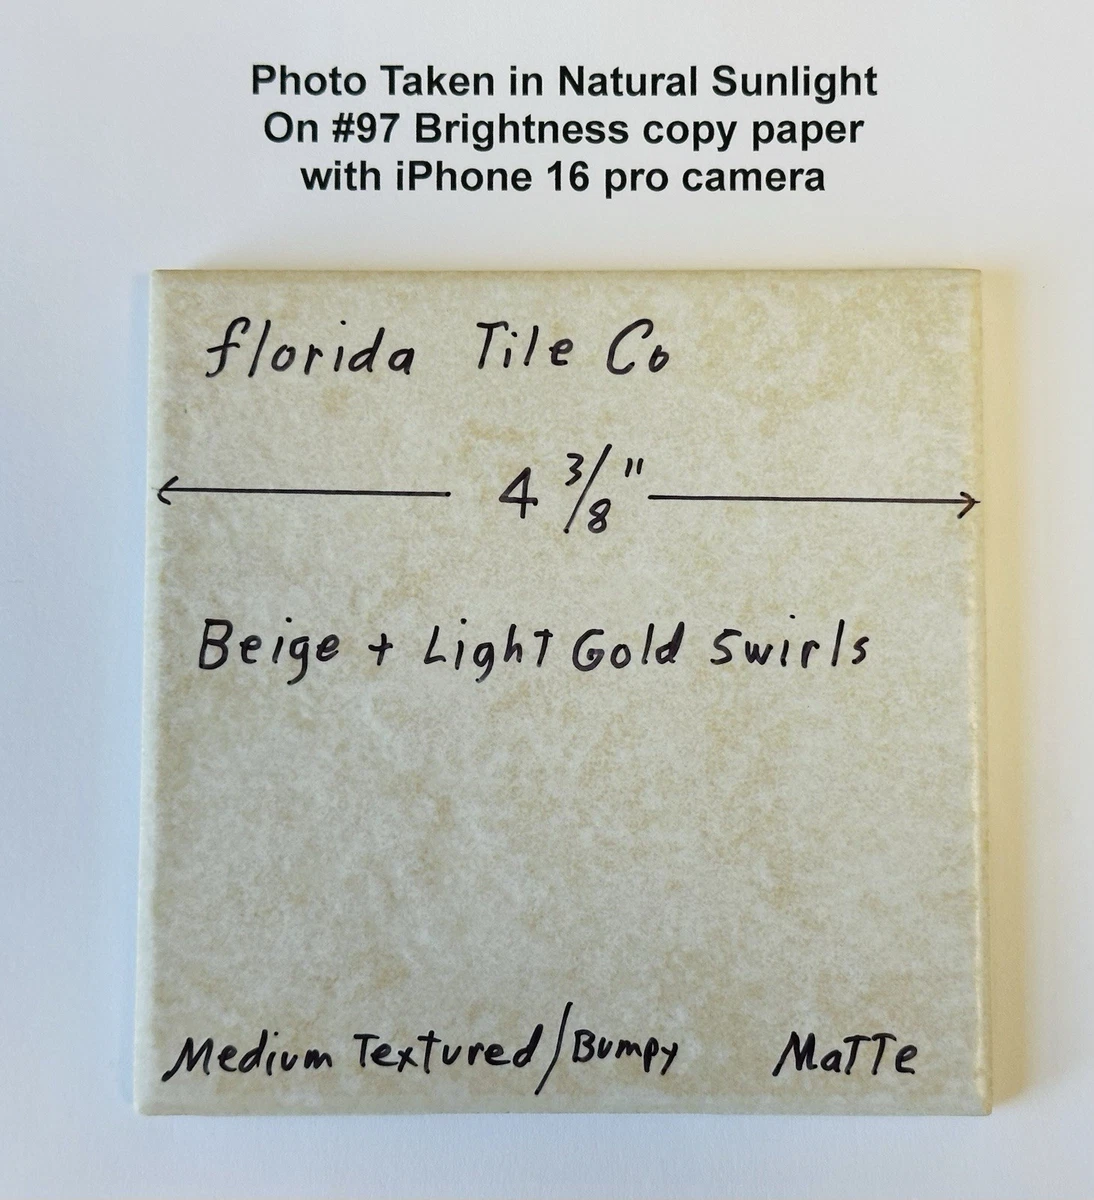 Photo Taken in Natural Sunlight
On #97 Brightness copy paper
with iPhone 16 pro camera
florida Tile Co
4 3/8"
Beige + Light Gold Swirls
Medium Textured/Bumpy MaTTe